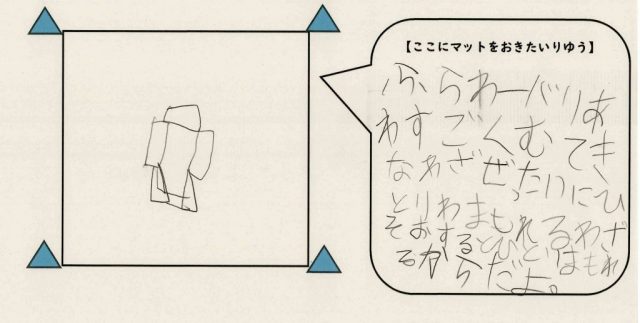 【ここにマットをおきたいりゆう】
ふらわーバリあ
わすごくむてき
なわざぜったいにひ
とりわまもれるわざ
そおすると はもれ
るからだよ。